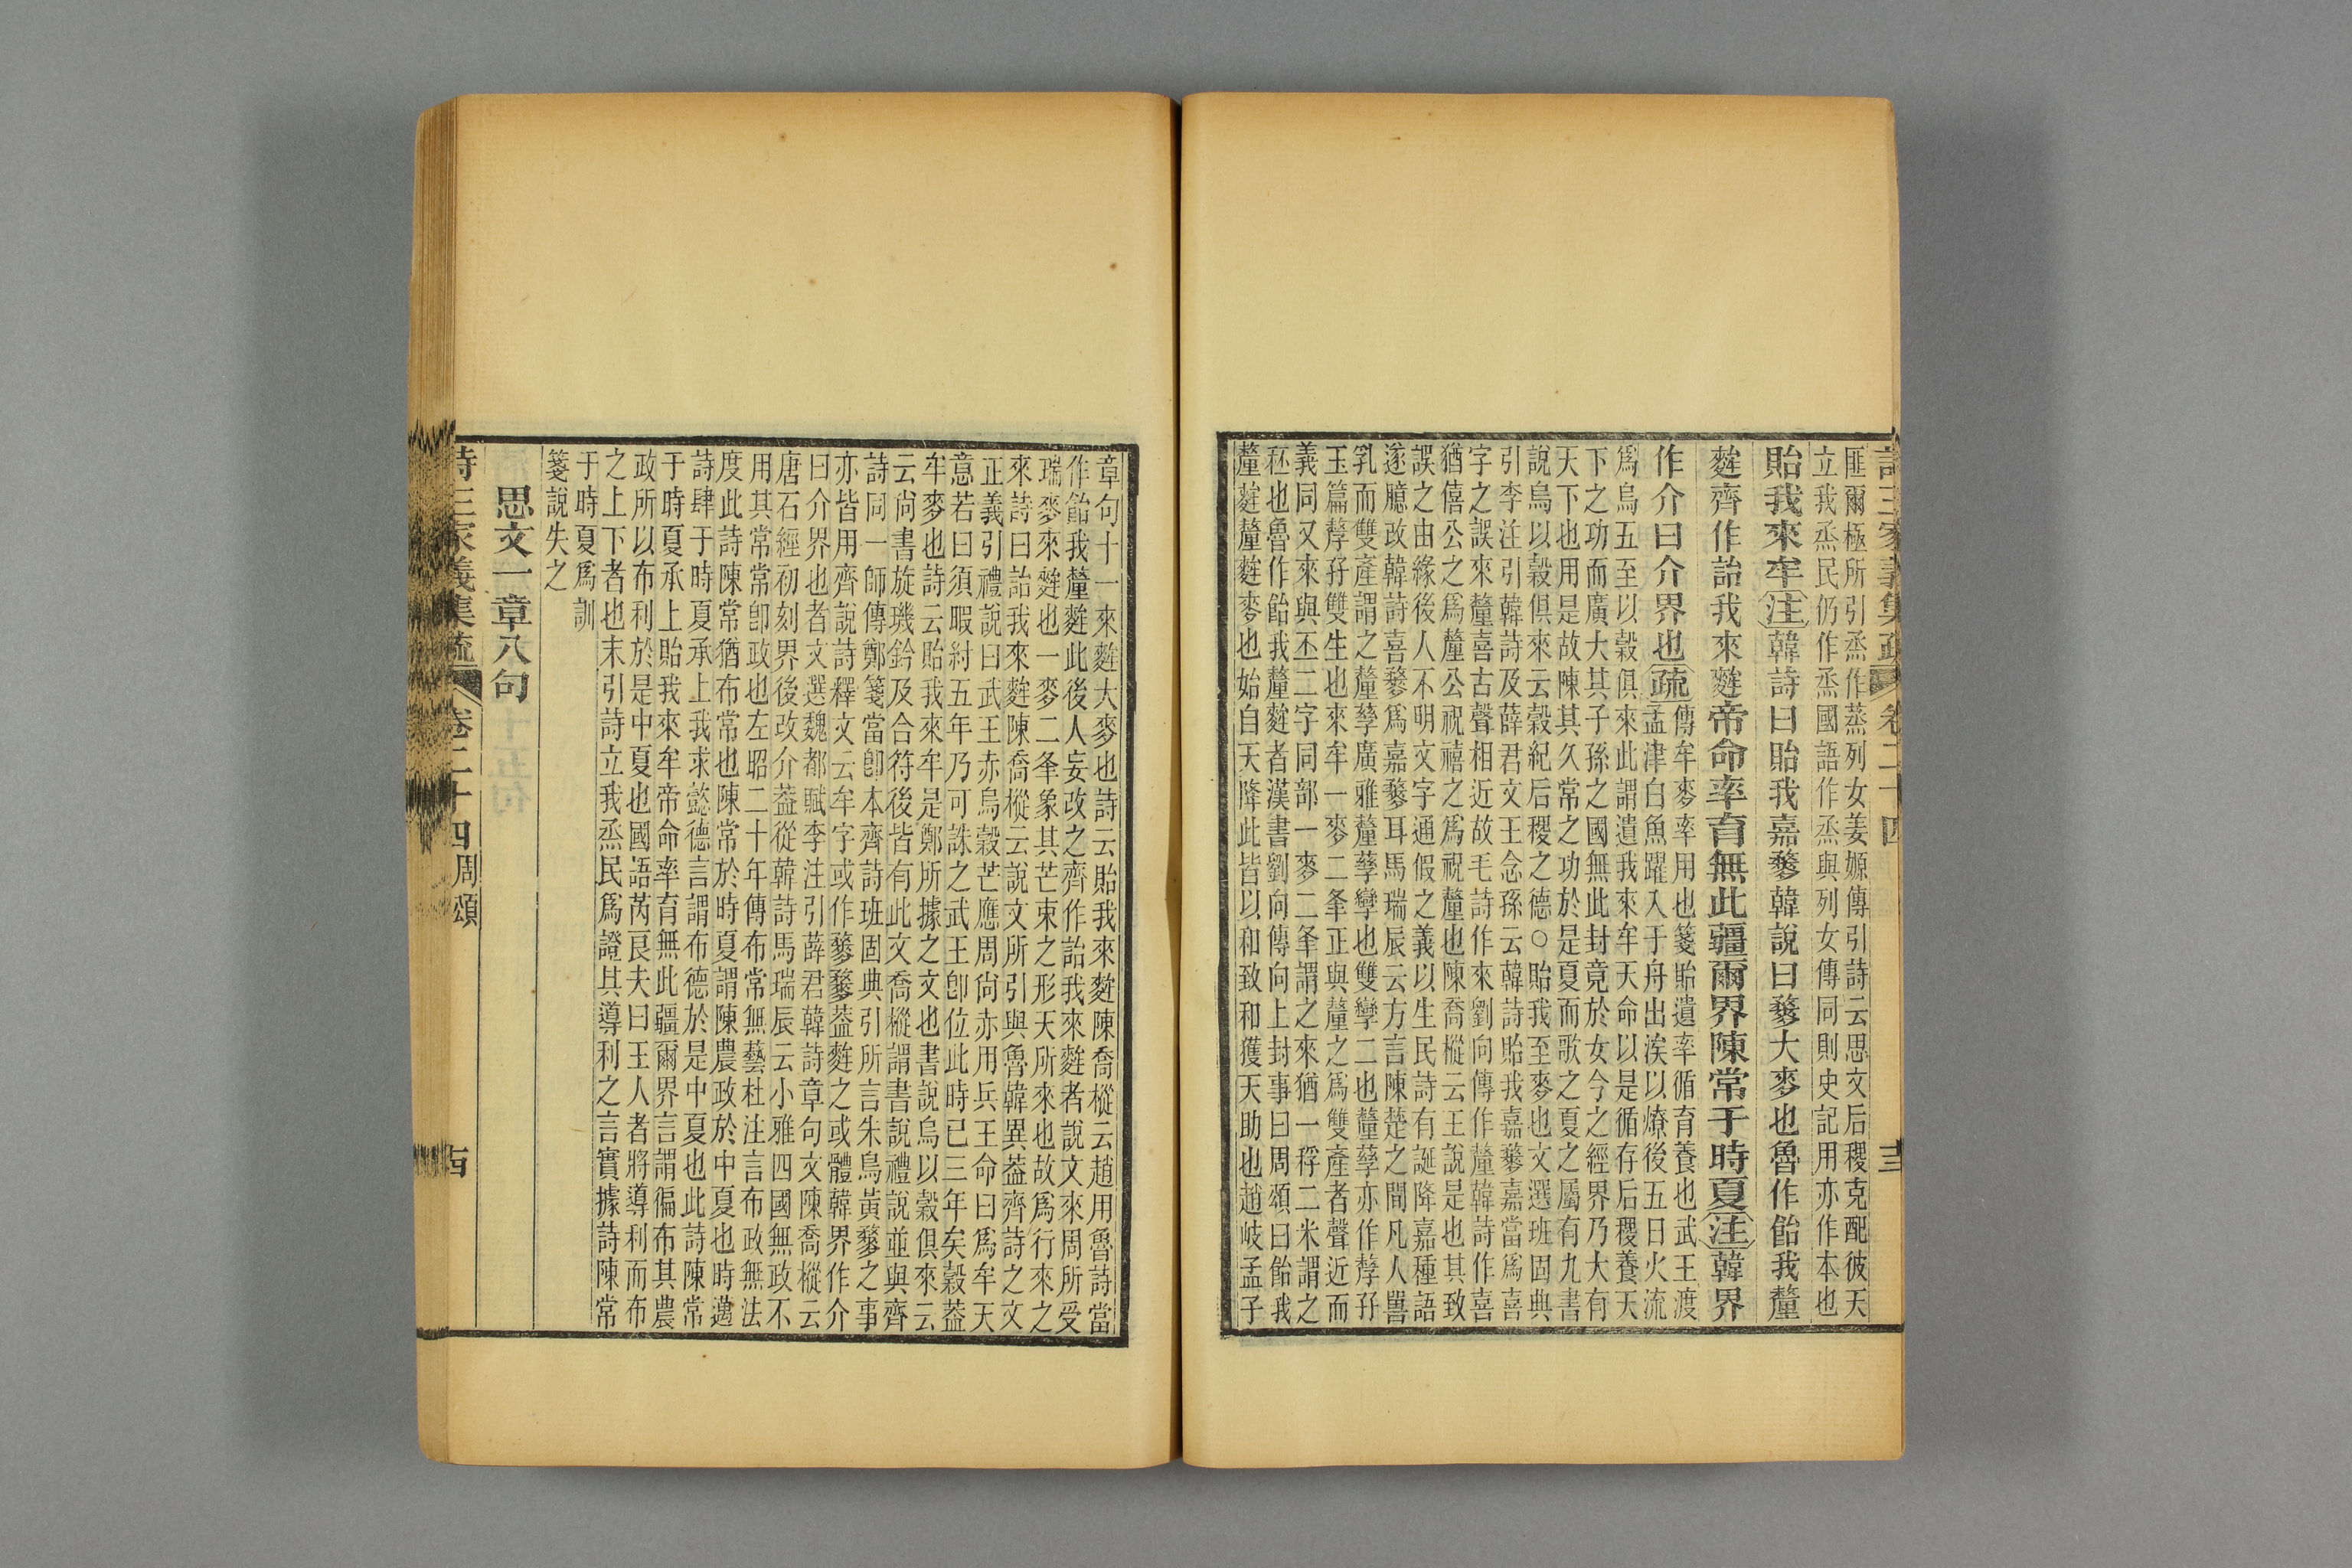 詩三家義集疏 卷二十四 十三
匪爾極所引烝作蒸列女姜嫄傳引詩云思文后稷克配彼天
立我烝民仍作烝國語作烝與列女傳同則史記用亦作本也
貽我來牟注韓詩曰貽我嘉麰韓說曰麰大麥也魯作飴我釐
麰齊作詒我來麰帝命率育無此疆爾界陳常于時夏注韓界
作介曰介界也疏傳牟麥率用也箋貽遺率循育養也武王渡
孟津白魚躍入于舟出涘以燎後五日火流
爲烏五至以穀俱來此謂遺我來牟天命以是循存后稷養天
下之功而廣大其子孫之國無此封竟於女今之經界乃大有
天下也用是故陳其久常之功於是夏而歌之夏之屬有九書
說烏以穀俱來云穀紀后稷之德○貽我至麥也文選班固典
引李注引韓詩及薛君文王念孫云韓詩貽我嘉麰嘉當爲喜
字之誤來釐喜古聲相近故毛詩作來劉向傳作釐韓詩作喜
猶僖公之爲釐公祝禧之爲祝釐也陳喬樅云王說是也其致
誤之由緣後人不明文字通假之義以生民詩有誕降嘉種語
遂臆政韓詩喜麰爲嘉麰耳馬瑞辰云方言陳楚之間凡人嘼
乳而雙產謂之釐孳廣雅釐孳孿也雙孿二也釐孳亦作孷孖
玉篇孷孖雙生也來牟一麥二夆正與釐之爲雙產者聲近而
義同又來與丕二字同部一麥二夆謂之來猶一稃二米謂之
秠也魯作飴我釐麰者漢書劉向傳向上封事曰周頌曰飴我
釐麰釐麰麥也始自天降此皆以和致和獲天助也趙岐孟子
章句十一來麰大麥也詩云貽我來麰陳喬樅云趙用魯詩當
作飴我釐麰此後人妄改之齊作詒我來麰者說文來周所受
瑞麥來麰也一麥二夆象其芒束之形天所來也故爲行來之
來詩曰詒我來麰陳喬樅云說文所引與魯韓異葢齊詩之文
正義引禮說曰武王赤烏穀芒應周尚赤用兵王命曰爲牟天
意若曰須暇紂五年乃可誅之武王卽位此時已三年矣穀葢
牟麥也詩云貽我來牟是鄭所據之文也書說烏以穀俱來云
云尚書旋璣鈐及合符後皆有此文喬樅謂書說禮說並與齊
詩同一師傳鄭箋當卽本齊詩班固典引所言朱烏黃麰之事
亦皆用齊說詩釋文云牟字或作麰麰葢麰之或體韓界作介
曰介界也者文選魏都賦李注引薛君韓詩章句文陳喬樅云
唐石經初刻界後改介葢從韓詩馬瑞辰云小雅四國無政不
用其常常卽政也左昭二十年傳布常無藝杜注言布政無法
度此詩陳常猶布常也陳常於時夏謂陳農政於中夏也時邁
詩肆于時夏承上我求懿德言謂布德於是中夏也此詩陳常
于時夏承上貽我來牟帝命率育無此疆爾界言謂徧布其農
政所以布利於是中夏也國語芮良夫曰王人者將導利而布
之上下者也末引詩立我烝民爲證其導利之言實據詩陳常
于時夏爲訓
箋說失之
思文一章八句
詩三家義集疏 卷二十四周頌 十四